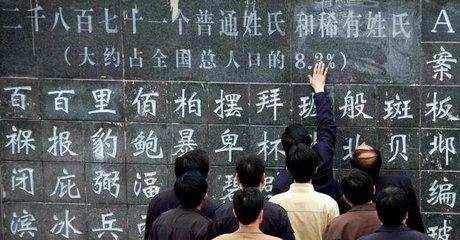 二千八百七十一个普通姓氏和稀有姓氏
(大约占全国总人口的8.2%)
A
案
百 百里 佰 柏 摆 拜 班 般 斑 板
褓 报 豹 鲍 暴 卑 北 贝 邶
闭 庇 弼 湢 碧 编
滨 冰 兵